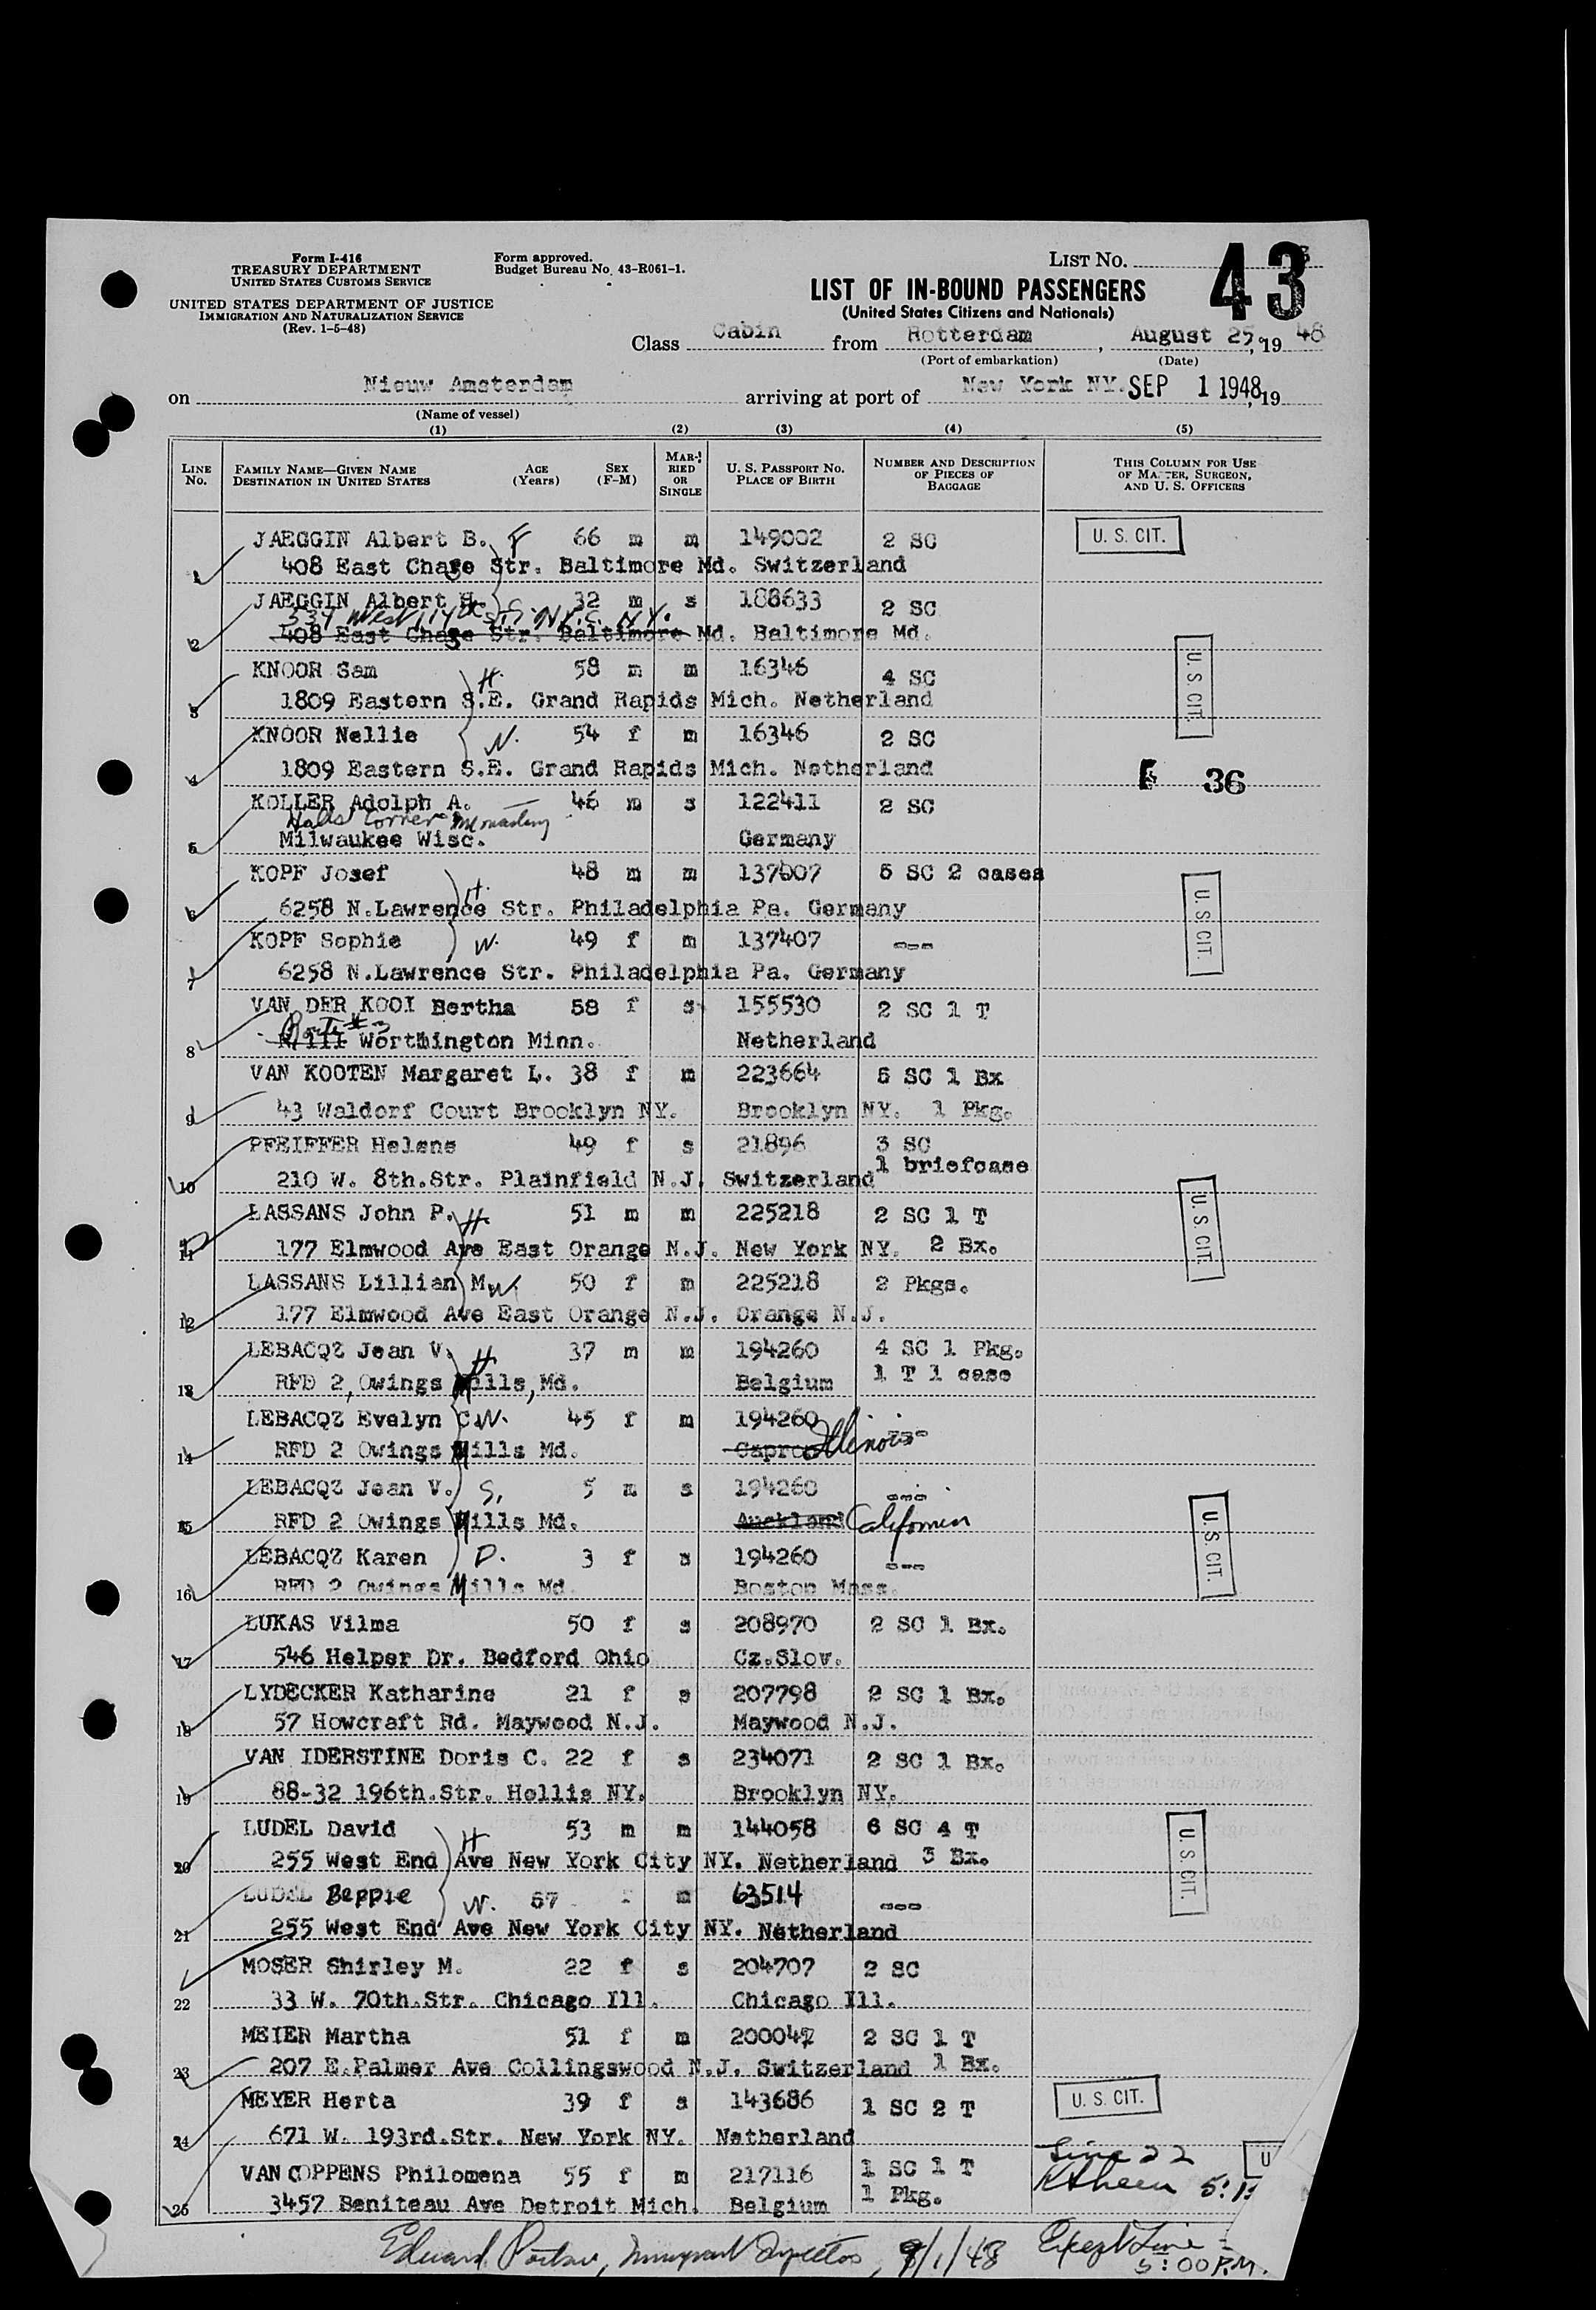 Form I-416
TREASURY DEPARTMENT
UNITED STATES CUSTOMS SERVICE
UNITED STATES DEPARTMENT OF JUSTICE
IMMIGRATION AND NATURALIZATION SERVICE
(Rev. 1-5-48)
Form approved.
Budget Bureau No. 43-R061-1.
LIST No. 43
LIST OF IN-BOUND PASSENGERS
(United States Citizens and Nationals)
Class Cabin from Rotterdam, August 25, 1948
(Port of embarkation) (Date)
on Nieuw Amsterdam arriving at port of New York NY. SEP 1 1948, 19
(Name of vessel)
(1) (2) (3) (4) (5)
LINE No. FAMILY NAME—GIVEN NAME DESTINATION IN UNITED STATES AGE (Years) SEX (F-M) MARRIED OR SINGLE U. S. PASSPORT No. PLACE OF BIRTH NUMBER AND DESCRIPTION OF PIECES OF BAGGAGE THIS COLUMN FOR USE OF MASTER, SURGEON, AND U. S. OFFICERS
JAEGGIN Albert B. F 66 m m 149002 2 SC U. S. CIT.
1 408 East Chase Str. Baltimore Md. Switzerland
JAEGGIN Albert H. S. 32 m s 188633 2 SC
534 West 114th St. N.Y.C. N.Y.
2 408 East Chase Str. Baltimore Md. Baltimore Md.
KNOOR Sam H. 58 m m 16346 4 SC U. S. CIT.
3 1809 Eastern S.E. Grand Rapids Mich. Netherland
KNOOR Nellie W. 54 f m 16346 2 SC
4 1809 Eastern S.E. Grand Rapids Mich. Netherland 36
KOLLER Adolph A. 46 m s 122411 2 SC
Hales Corner Monastery
5 Milwaukee Wisc. Germany
KOPF Josef H. 48 m m 137607 5 SC 2 cases U. S. CIT.
6 6258 N.Lawrence Str. Philadelphia Pa. Germany
KOPF Sophie W. 49 f m 137407 ---
7 6258 N.Lawrence Str. Philadelphia Pa. Germany
VAN DER KOOI Bertha 58 f s 155530 2 SC 1 T
Route # 3
8 Worthington Minn. Netherland
VAN KOOTEN Margaret L. 38 f m 223664 5 SC 1 Bx
9 43 Waldorf Court Brooklyn NY. Brooklyn NY. 1 Pkg.
PFEIFFER Helene 49 f s 21896 3 SC
1 briefcase
10 210 W. 8th.Str. Plainfield N.J. Switzerland
LASSANS John P. H. 51 m m 225218 2 SC 1 T U. S. CIT.
11 177 Elmwood Ave East Orange N.J. New York NY. 2 Bx.
LASSANS Lillian M. W. 50 f m 225218 2 Pkgs.
12 177 Elmwood Ave East Orange N.J. Orange N.J.
LEBACQZ Jean V. H. 37 m m 194260 4 SC 1 Pkg.
13 RFD 2, Owings Mills, Md. Belgium 1 T 1 case
LEBACQZ Evelyn C. W. 45 f m 194260 ---
14 RFD 2 Owings Mills Md. Capron Illinois
LEBACQZ Jean V. S. 5 m s 194260 ---
15 RFD 2 Owings Mills Md. Auckland California U. S. CIT.
LEBACQZ Karen D. 3 f s 194260 ---
16 RFD 2 Owings Mills Md. Boston Mass.
LUKAS Vilma 50 f s 208970 2 SC 1 Bx.
17 546 Helper Dr. Bedford Ohio Cz.Slov.
LYDECKER Katharine 21 f s 207798 2 SC 1 Bx.
18 57 Howcraft Rd. Maywood N.J. Maywood N.J.
VAN IDERSTINE Doris C. 22 f s 234071 2 SC 1 Bx.
19 88-32 196th.Str. Hollis NY. Brooklyn NY.
LUDEL David H 53 m m 144058 6 SC 4 T U. S. CIT.
20 255 West End Ave New York City NY. Netherland 3 Bx.
LUDEL Beppie W. 57 f m 63514 ---
21 255 West End Ave New York City NY. Netherland
MOSER Shirley M. 22 f s 204707 2 SC
22 33 W. 70th.Str. Chicago Ill. Chicago Ill.
MEIER Martha 51 f m 200047 2 SC 1 T
23 207 E.Palmer Ave Collingswood N.J. Switzerland 1 Bx.
MEYER Herta 39 f s 143686 1 SC 2 T U. S. CIT.
24 671 W. 193rd.Str. New York NY. Netherland
Line 22 U
VAN COPPENS Philomena 55 f m 217116 1 SC 1 T
25 3457 Beniteau Ave Detroit Mich. Belgium 1 Pkg.
Edward, Immigrant Inspector, 9/1/48 Except Line
5:00 P.M.